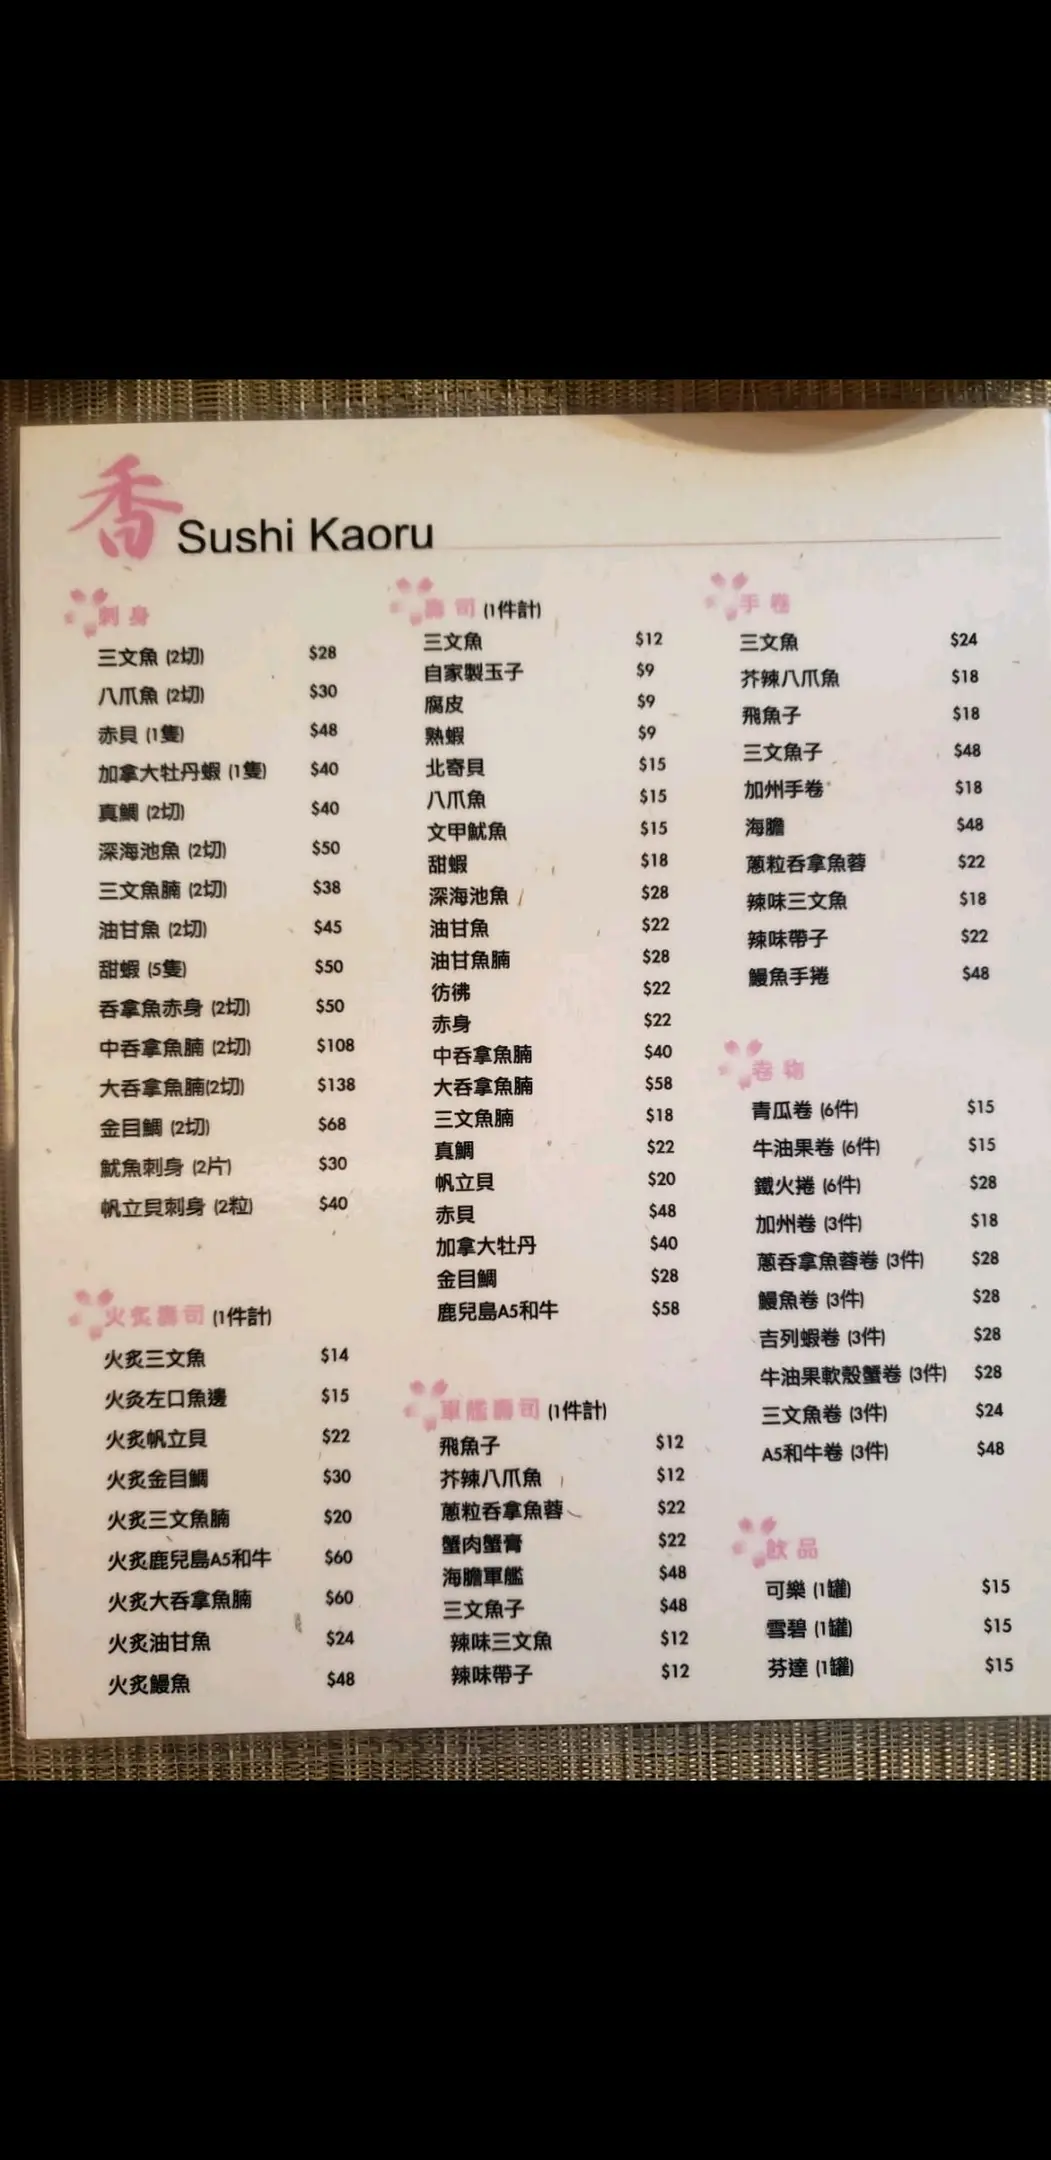 香 Sushi Kaoru
刺身
三文魚 (2切) $28
八爪魚 (2切) $30
赤貝 (1隻) $48
加拿大牡丹蝦 (1隻) $40
真鯛 (2切) $40
深海池魚 (2切) $50
三文魚腩 (2切) $38
油甘魚 (2切) $45
甜蝦 (5隻) $50
吞拿魚赤身 (2切) $50
中吞拿魚腩 (2切) $108
大吞拿魚腩(2切) $138
金目鯛 (2切) $68
魷魚刺身 (2片) $30
帆立貝刺身 (2粒) $40
火炙壽司 (1件計)
火炙三文魚 $14
火灸左口魚邊 $15
火炙帆立貝 $22
火炙金目鯛 $30
火炙三文魚腩 $20
火炙鹿兒島A5和牛 $60
火炙大吞拿魚腩 $60
火炙油甘魚 $24
火炙鰻魚 $48
壽司 (1件計)
三文魚 $12
自家製玉子 $9
腐皮 $9
熟蝦 $9
北寄貝 $15
八爪魚 $15
文甲魷魚 $15
甜蝦 $18
深海池魚 $28
油甘魚 $22
油甘魚腩 $28
彷彿 $22
赤身 $22
中吞拿魚腩 $40
大吞拿魚腩 $58
三文魚腩 $18
真鯛 $22
帆立貝 $20
赤貝 $48
加拿大牡丹 $40
金目鯛 $28
鹿兒島A5和牛 $58
軍艦壽司 (1件計)
飛魚子 $12
芥辣八爪魚 $12
蔥粒吞拿魚蓉 $22
蟹肉蟹膏 $22
海膽軍艦 $48
三文魚子 $48
辣味三文魚 $12
辣味帶子 $12
手卷
三文魚 $24
芥辣八爪魚 $18
飛魚子 $18
三文魚子 $48
加州手卷 $18
海膽 $48
蔥粒吞拿魚蓉 $22
辣味三文魚 $18
辣味帶子 $22
鰻魚手捲 $48
卷物
青瓜卷 (6件) $15
牛油果卷 (6件) $15
鐵火捲 (6件) $28
加州卷 (3件) $18
蔥吞拿魚蓉卷 (3件) $28
鰻魚卷 (3件) $28
吉列蝦卷 (3件) $28
牛油果軟殼蟹卷 (3件) $28
三文魚卷 (3件) $24
A5和牛卷 (3件) $48
飲品
可樂 (1罐) $15
雪碧 (1罐) $15
芬達 (1罐) $15